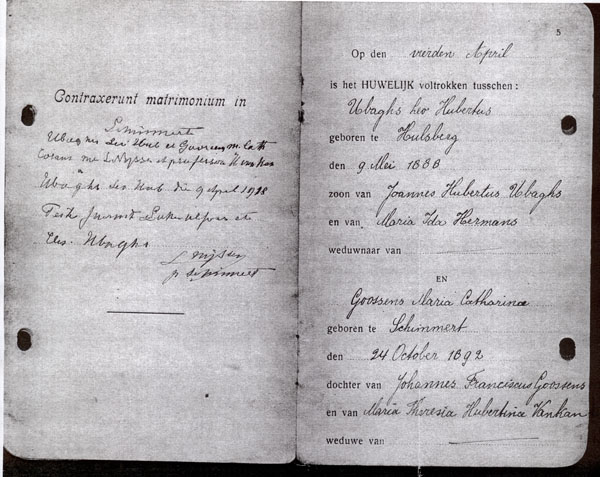 Contraxerunt matrimonium in
Schimmert
Ubaghs Leo Hub et Goossens M. Cath
coram me L Nijssen
Ubaghs Leo Hub die 9 April 1918
Test
Ubaghs
L Nijssen
p. Schimmert
5
Op den vierden April
is het HUWELIJK voltrokken tusschen:
Ubaghs Leo Hubertus
geboren te Hulsberg
den 9 Mei 1888
zoon van Joannes Hubertus Ubaghs
en van Maria Ida Hermans
weduwnaar van
EN
Goossens Maria Catharina
geboren te Schimmert
den 24 October 1892
dochter van Johannes Franciscus Goossens
en van Maria Theresia Hubertina Vankan
weduwe van